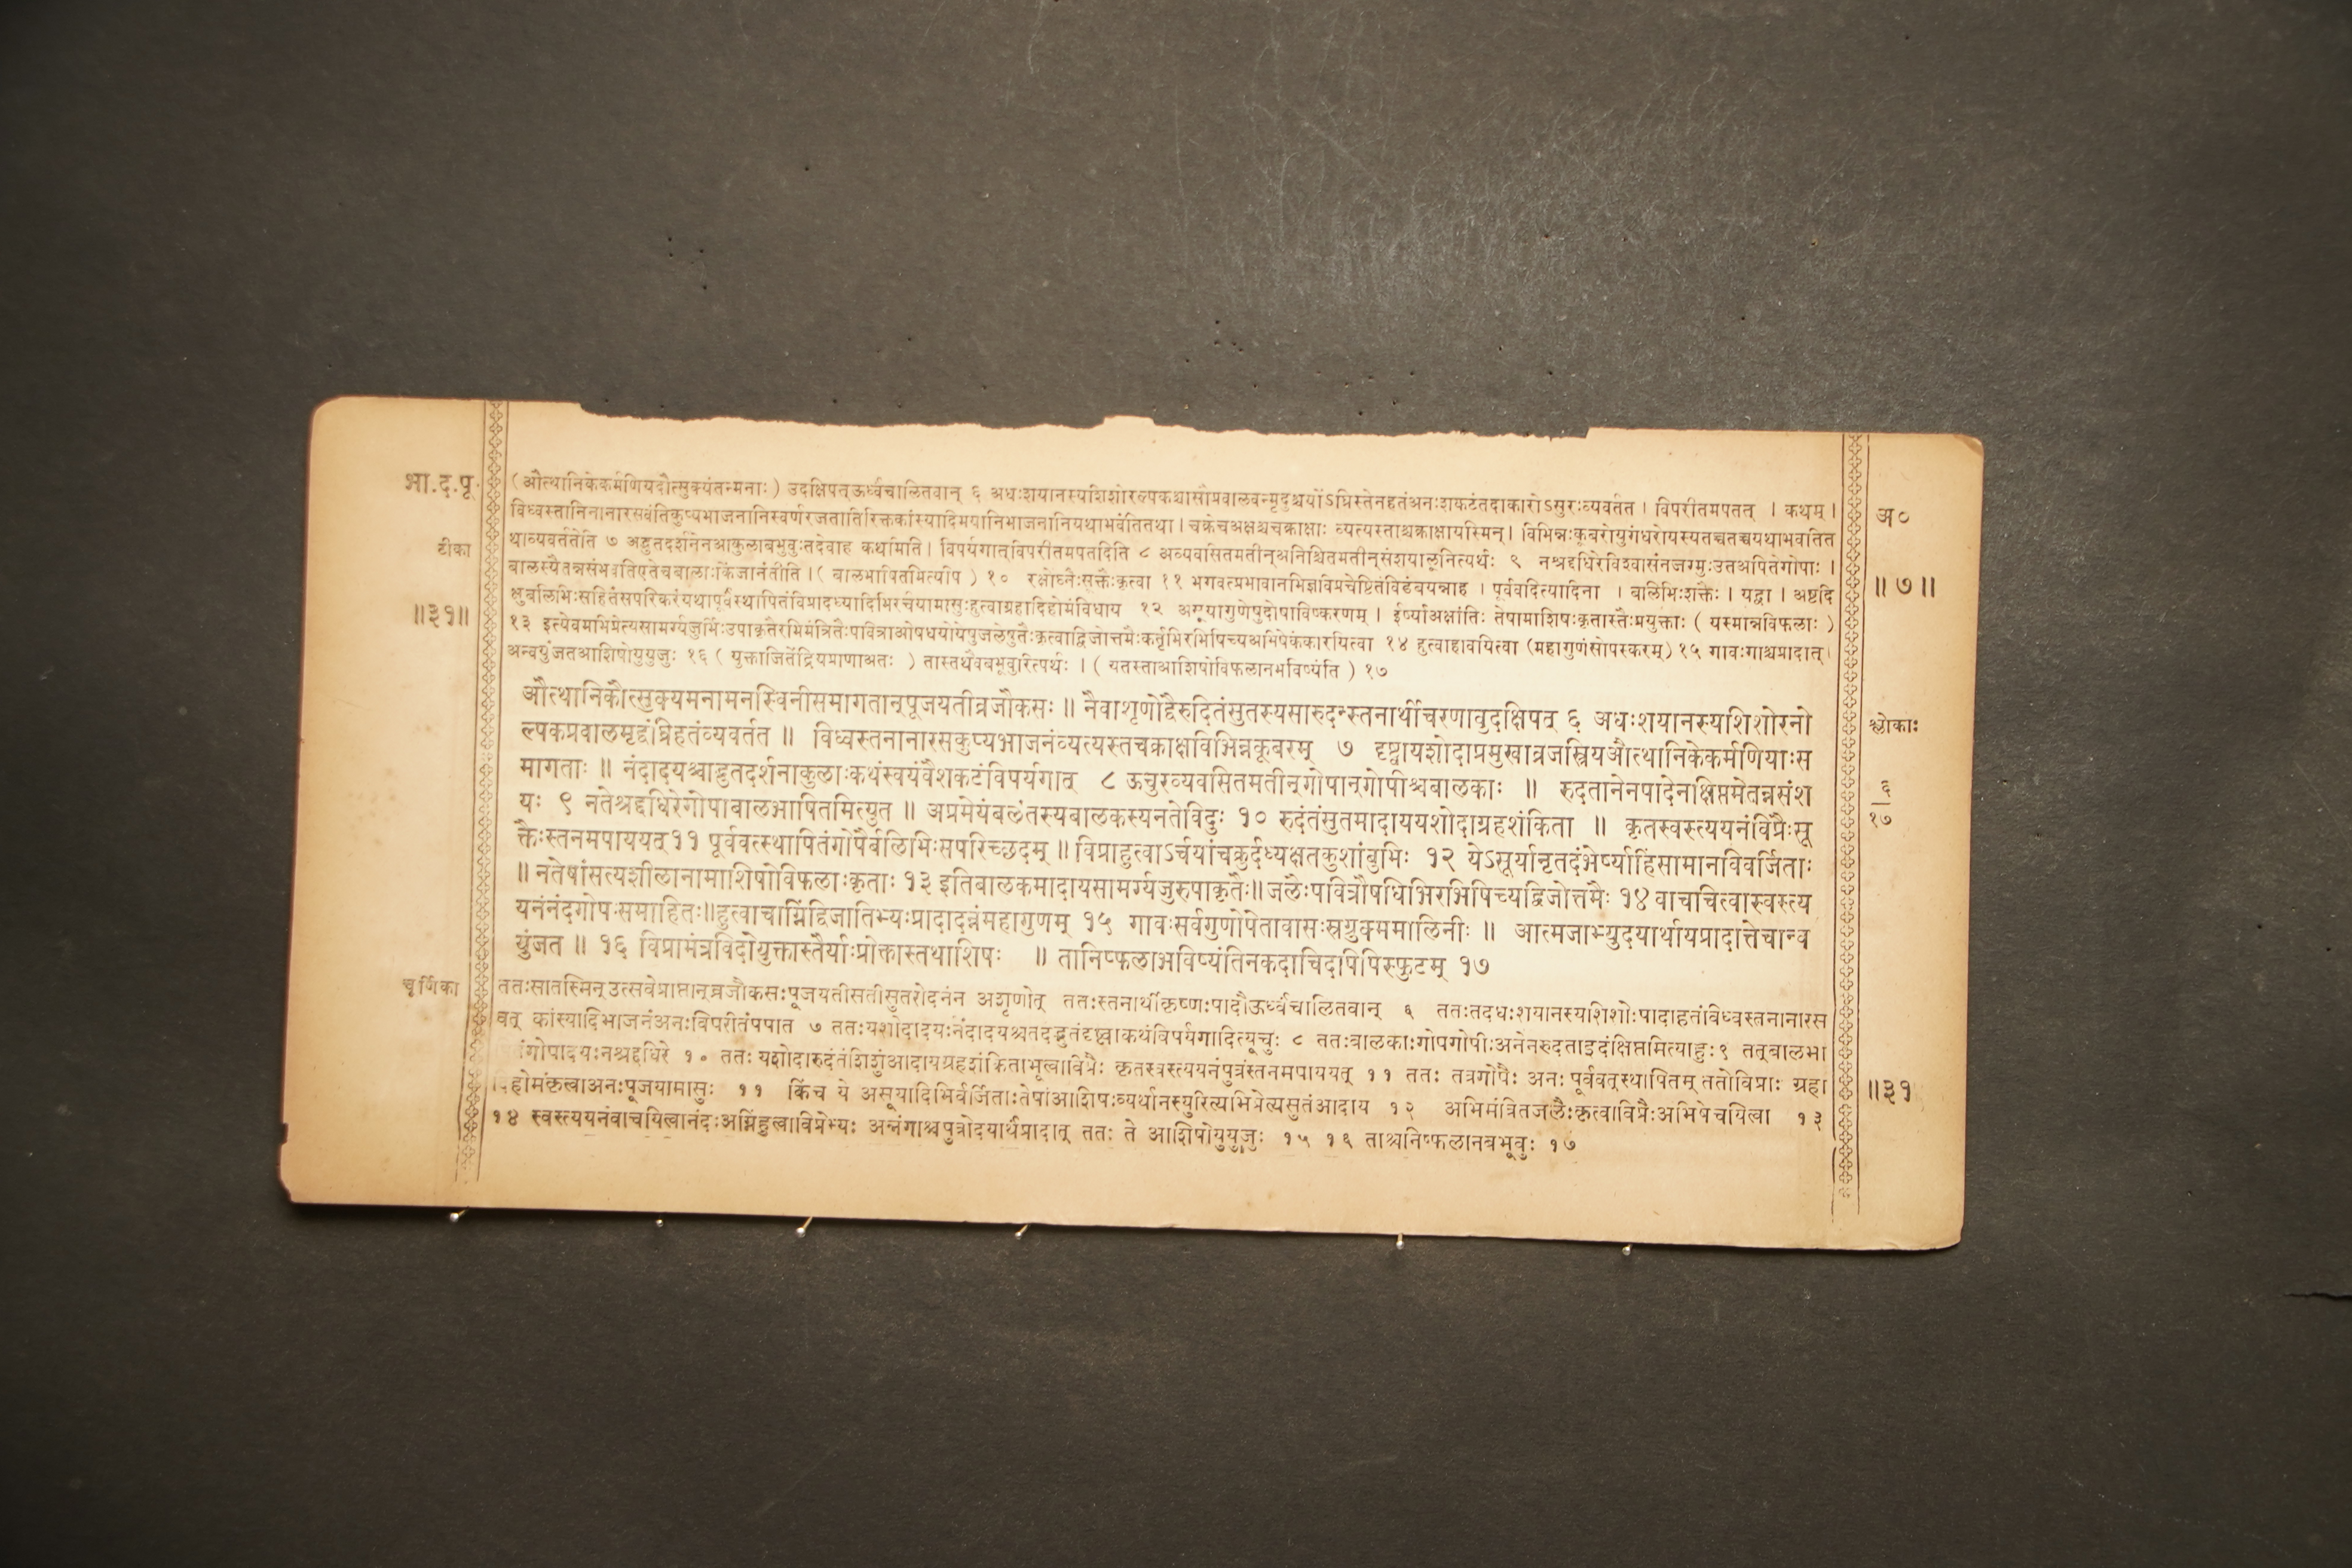 भा.द.पू.
टीका
॥३१॥
(औत्थानिकेकर्मणियदौत्सुक्यंतन्मनाः) उदक्षिपत्ऊर्ध्वंचालितवान् ६ अधःशयानस्यशिशोरल्पकश्चासौप्रवालवन्मृदुश्चयोंऽघ्रिस्तेनहतंअनःशकटंतदाकारोऽसुरःव्यवर्तत । विपरीतमपतत् । कथम् ।
विध्वस्तानिनानारसवंतिकुप्यभाजनानिस्वर्णरजतातिरिक्तकांस्यादिमयानिभाजनानियथाभवंतितथा । चक्रेचअक्षश्चचक्राक्षाः व्यत्यस्ताश्चक्राक्षायस्मिन् । विभिन्नःकूबरोयुगंधरोयस्यतच्चतच्चयथाभवतित
थाव्यवर्ततेति ७ अद्भुतदर्शनेनआकुलाबभूवुःतदेवाह कथमिति । विपर्यगात्विपरीतमपतदिति ८ अव्यवसितमतीन्अनिश्चितमतीन्संशयालूनित्यर्थः ९ नश्रद्दधिरेविश्वासंनजग्मुःउतअपितेगोपाः ।
बालस्यैतन्नसंभवतिएतेचबालाःकिंजानंतीति । ( बालभाषितमित्यपि ) १० रक्षोघ्नैःसूक्तैःकृत्वा ११ भगवत्प्रभावानभिज्ञविप्रचेष्टितंविडंबयन्नाह । पूर्ववदित्यादिना । बलिभिःशक्तैः । यद्वा । अष्टदि
क्षुबलिभिःसहितंसपरिकरंयथापूर्वंस्थापितंविप्रादध्यादिभिरर्चयामासुःहुत्वाग्रहादिहोमंविधाय १२ असूयागुणेषुदोषाविष्करणम् । ईर्ष्याअक्षांतिः तेषामाशिषःकृतास्तैःप्रयुक्ताः ( यस्मान्नविफलाः )
१३ इत्येवमभिप्रेत्यसामर्ग्यजुर्भिःउपाकृतैरभिमंत्रितैःपवित्राओषधयोयेषुजलेषुतैःकृत्वाद्विजोत्तमैःकर्तृभिरभिषिच्यअभिषेकंकारयित्वा १४ हुत्वाहावयित्वा (महागुणंसोपस्करम्) १५ गावःगाश्चप्रादात् ।
अन्वयुंजतआशिषोयुयुजुः १६ ( युक्ताजितेंद्रियप्राणाअतः ) तास्तथैवबभूवुरित्यर्थः । ( यतस्ताआशिषोविफलानभविष्यंति ) १७
औत्थानिकौत्सुक्यमनामनस्विनीसमागतान्पूजयतीव्रजौकसः ॥ नैवाशृणोद्वैरुदितंसुतस्यसारुदन्स्तनार्थीचरणावुदक्षिपत् ६ अधःशयानस्यशिशोरनो
ल्पकप्रवालमृद्वंघ्रिहतंव्यवर्तत ॥ विध्वस्तनानारसकुप्यभाजनंव्यत्यस्तचक्राक्षविभिन्नकूबरम् ७ दृष्ट्वायशोदाप्रमुखाव्रजस्त्रियऔत्थानिकेकर्मणियाःस
मागताः ॥ नंदादयश्चाद्भुतदर्शनाकुलाःकथंस्वयंवैशकटंविपर्यगात् ८ ऊचुरव्यवसितमतीन्गोपान्गोपीश्चबालकाः ॥ रुदतानेनपादेनक्षिप्तमेतन्नसंश
यः ९ नतेश्रद्दधिरेगोपाबालभाषितमित्युत ॥ अप्रमेयंबलंतस्यबालकस्यनतेविदुः १० रुदंतंसुतमादाययशोदाग्रहशंकिता ॥ कृतस्वस्त्ययनंविप्रैःसू
क्तैःस्तनमपाययत् ११ पूर्ववत्स्थापितंगोपैर्बलिभिःसपरिच्छदम् ॥ विप्राहुत्वाऽर्चयांचक्रुर्दध्यक्षतकुशांबुभिः १२ येऽसूयानृतदंभेर्ष्याहिंसामानविवर्जिताः
॥ नतेषांसत्यशीलानामाशिषोविफलाःकृताः १३ इतिबालकमादायसामर्ग्यजुरुपाकृतैः॥जलैःपवित्रौषधिभिरभिषिच्यद्विजोत्तमैः १४ वाचयित्वास्वस्त्य
यनंनंदगोपःसमाहितः॥हुत्वाचाग्निंद्विजातिभ्यःप्रादादन्नंमहागुणम् १५ गावःसर्वगुणोपेतावासःस्रग्रुक्ममालिनीः ॥ आत्मजाभ्युदयार्थायप्रादात्तेचान्व
युंजत ॥ १६ विप्रामंत्रविदोयुक्तास्तैर्याःप्रोक्तास्तथाशिषः ॥ तानिष्फलाभविष्यंतिनकदाचिदपिपिस्फुटम् १७
चूर्णिका
ततःसातस्मिन्उत्सवेप्राप्तान्व्रजौकसःपूजयतीसतीसुतरोदनंन अशृणोत् ततःस्तनार्थीकृष्णःपादौऊर्ध्वंचालितवान् ६ ततःतदधःशयानस्यशिशोःपादाहतंविध्वस्तनानारस
वत् कांस्यादिभाजनंअनःविपरीतंपपात ७ ततःयशोदादयःनंदादयश्चतदद्भुतंदृष्ट्वाकथंविपर्यगादित्यूचुः ८ ततःबालकाःगोपगोपीःअनेनरुदताइदंक्षिप्तमित्याहुः९ तत्बालभा
गोपादयःनश्रद्दधिरे १० ततः यशोदारुदंतंशिशुंआदायग्रहशंकिताभूत्वाविप्रैः कृतस्वस्त्ययनंपुत्रंस्तनमपाययत् ११ ततः तत्रगोपैः अनः पूर्ववत्स्थापितम् ततोविप्राः ग्रहा
होमंकृत्वाअनःपूजयामासुः ११ किंच ये असूयादिभिर्वर्जिताःतेषांआशिषःव्यर्थानस्युरित्यभिप्रेत्यसुतंआदाय १२ अभिमंत्रितजलैःकृत्वाविप्रैःअभिषेचयित्वा १३
१४ स्वस्त्ययनंवाचयित्वानंदःअग्निंहुत्वाविप्रेभ्यः अन्नंगाश्चपुत्रोदयार्थंप्रादात् ततः ते आशिषोयुयुजुः १५ १६ ताश्चनिष्फलानबभूवुः १७
अ०
॥७॥
श्लोकाः
६
१७
॥३१